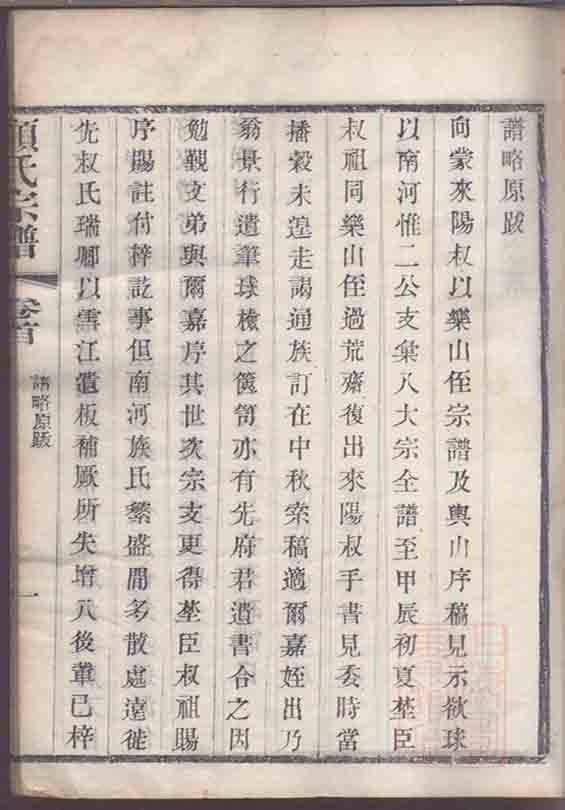 譜略原跋
向蒙來陽叔以樂山侄宗譜及與山序稿見示欲球
以南河惟二公支彙入大宗全譜至甲辰初夏埜臣
叔祖同樂山侄過荒齋復出來陽叔手書見委時當
播穀未遑走謁通族訂在中秋索稿適爾嘉姪出乃
翁景行遺筆球檢之篋笥亦有先府君遺書合之因
勉觀文弟與爾嘉序其世次宗支更得埜臣叔祖賜
序賜註付梓訖事但南河族氏繁盛間多散處遠徙
先叔氏瑞卿以雲江舊板補厥所失增入後輩已梓
項氏宗譜
卷首
譜略原跋
一